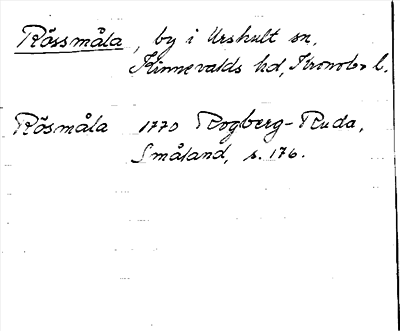 Rössmåla, by i Urshult sn,
Kinnevalds hd, Kronobr l.
Rösmåla 1770 Rogberg-Ruda,
Småland, s. 176.